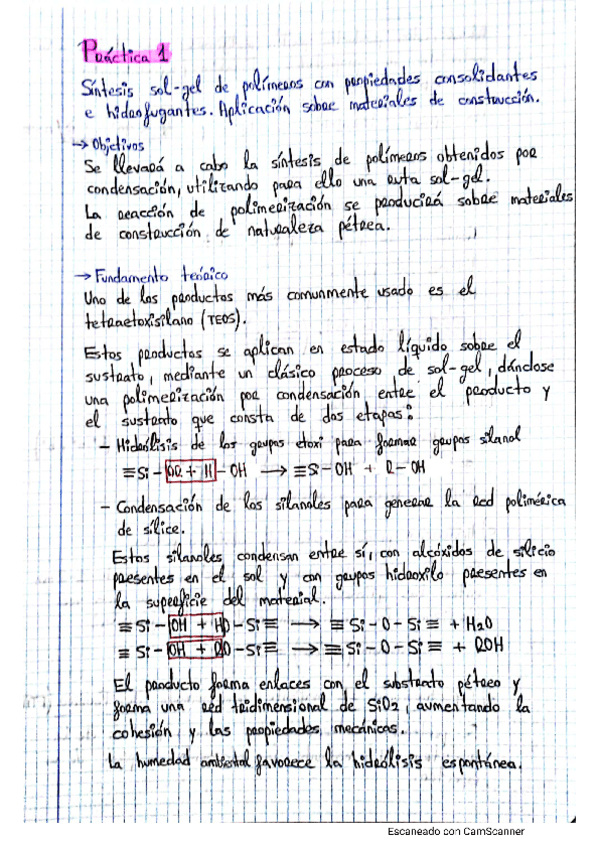 Práctica 1
Síntesis sol-gel de polímeros con propiedades consolidantes
e hidrofugantes. Aplicación sobre materiales de construcción.
→ Objetivos
Se llevará a cabo la síntesis de polímeros obtenidos por
condensación, utilizando para ello una ruta sol-gel.
La reacción de polimerización se producirá sobre materiales
de construcción de naturaleza pétrea.
→ Fundamento teórico
Uno de los productos más comunmente usado es el
tetraetoxisilano (TEOS).
Estos productos se aplican en estado líquido sobre el
sustrato, mediante un clásico proceso de sol-gel, dándose
una polimerización por condensación entre el producto y
el sustrato que consta de dos etapas:
- Hidrólisis de los grupos etoxi para formar grupos silanol
≡Si-OR + H-OH → ≡Si-OH + R-OH
- Condensación de los silanoles para generar la red polimérica
de sílice.
Estos silanoles condensan entre sí, con alcóxidos de silicio
presentes en el sol y con grupos hidroxilo presentes en
la superficie del material.
≡Si-OH + HO-Si≡ → ≡Si-O-Si≡ + H2O
≡Si-OH + RO-Si≡ → ≡Si-O-Si≡ + ROH
El producto forma enlaces con el substrato pétreo y
forma una red tridimensional de SiO2, aumentando la
cohesión y las propiedades mecánicas.
La humedad ambiental favorece la hidrólisis espontánea.
Escaneado con CamScanner